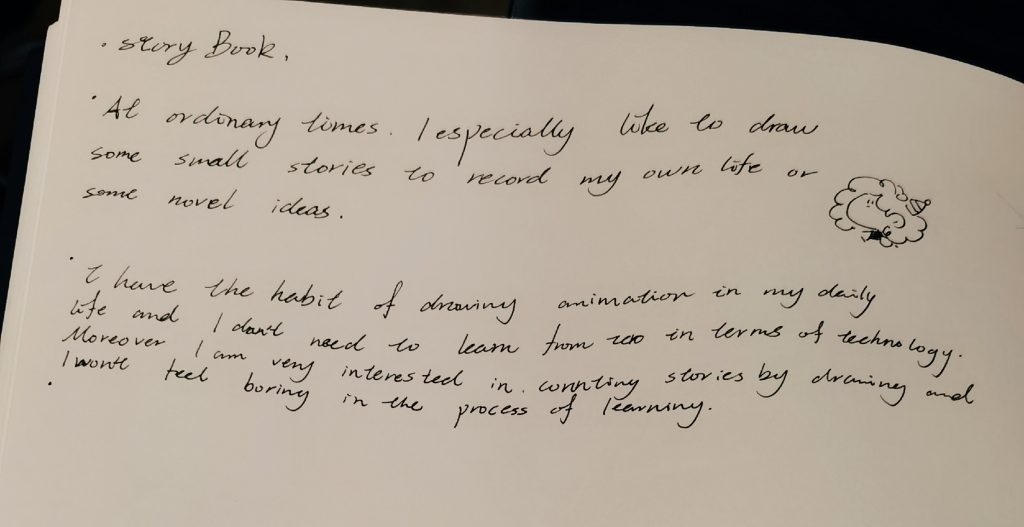 · Story Book.
· At ordinary times. I especially like to draw
some small stories to record my own life or
some novel ideas.
· I have the habit of drawing animation in my daily
life and I don't need to learn from zero in terms of technology.
Moreover I am very interested in. stories by drawing and
I won't feel boring in the process of learning.